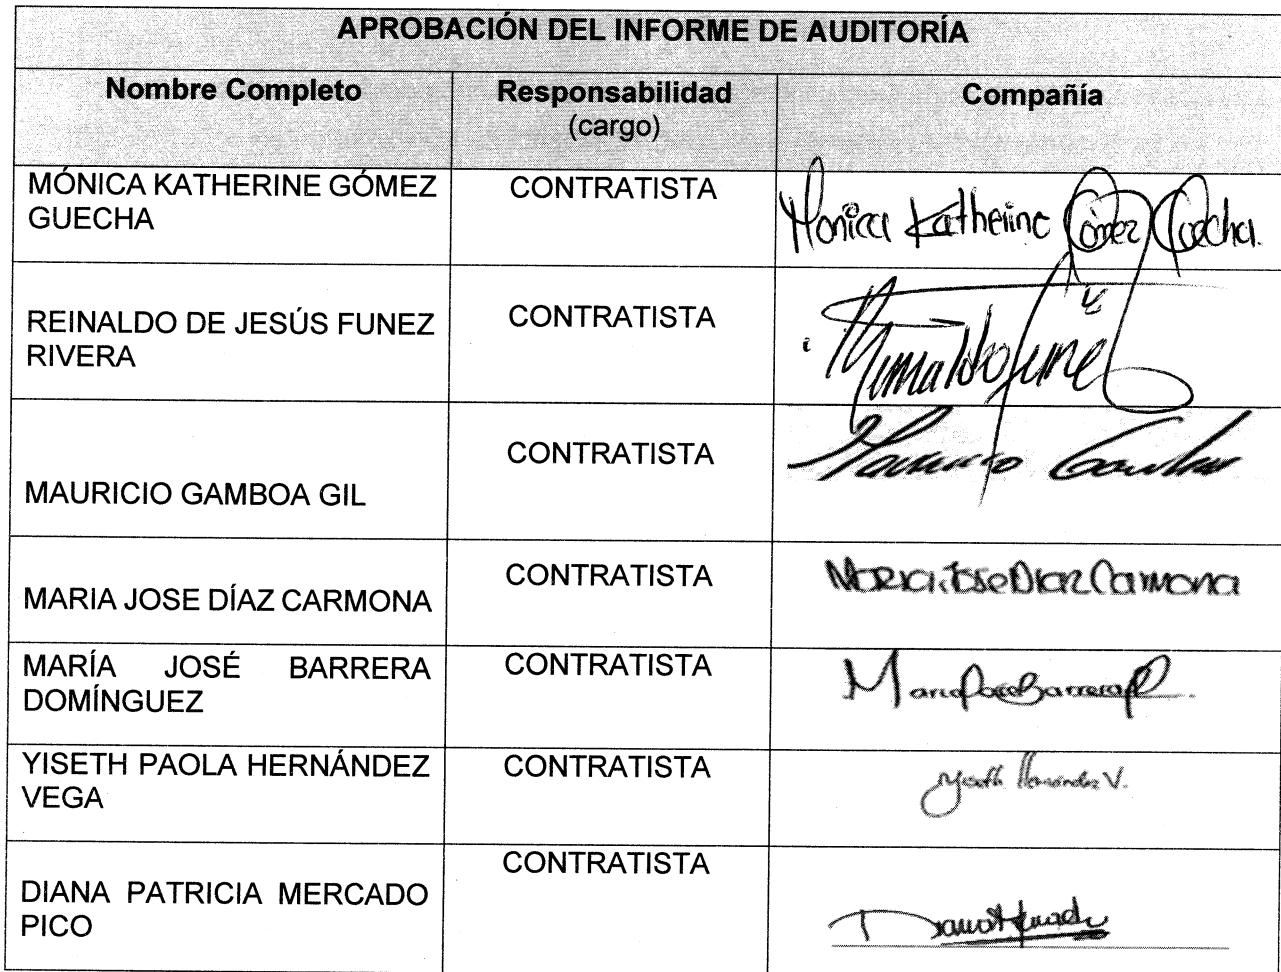 APROBACIÓN DEL INFORME DE AUDITORÍA
Nombre Completo
Responsabilidad
(cargo)
Compañía
MÓNICA KATHERINE GÓMEZ
GUECHA
CONTRATISTA
Monica Katherine Gómez Guecha.
REINALDO DE JESÚS FUNEZ
RIVERA
CONTRATISTA
MAURICIO GAMBOA GIL
CONTRATISTA
MARIA JOSE DÍAZ CARMONA
CONTRATISTA
Maria Jose Diaz Carmona
MARÍA JOSÉ BARRERA
DOMÍNGUEZ
CONTRATISTA
YISETH PAOLA HERNÁNDEZ
VEGA
CONTRATISTA
Yiseth Hernández V.
DIANA PATRICIA MERCADO
PICO
CONTRATISTA